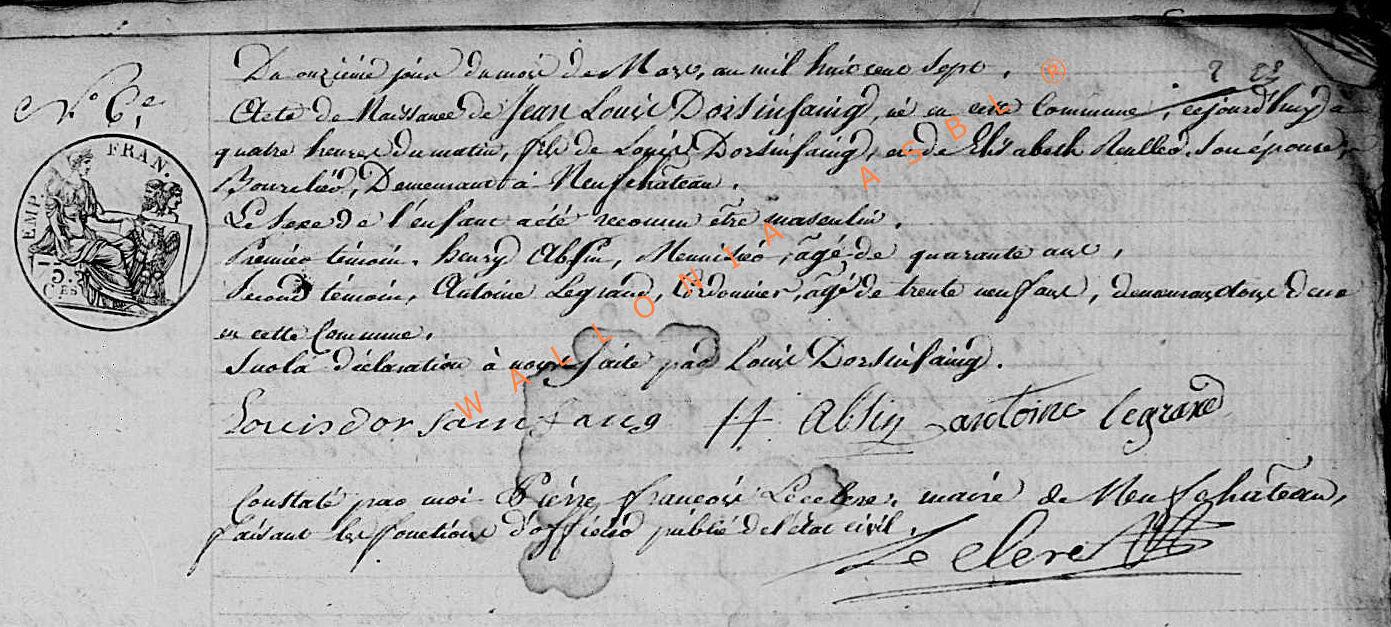 N.o 6.e
Du onzième jour du mois de Mars, au mil huit cent sept.
Acte de Naissance de Jean Louis Dorsinfaing, né en cette Commune, cejourd'huy à
quatre heures du matin, fils de Louis Dorsinfaing, et de Elisabeth Son épouse,
Bourelier, Demeurant à Neufchateau.
Le Sexe de l'enfant a été reconnu être masculin.
Premier témoin, henry Absin, Menuisier, âgé de quarante ans,
Second témoin, Antoine Legrand, Cordonnier, âgé de trente neuf ans, demeurans tous deux
en cette Commune.
Sur la déclaration à nous faite par Louis Dorsinfaing.
Louis dorsainfang H. Absin antoine legrand
Constaté par moi Pièrre françois Leclere, maire de Neufchâteau,
faisant les fonctions d'officier public de l'état civil.
Le clere
EMP. FRAN.
5
C.ES
WALLONIA ASBL ®